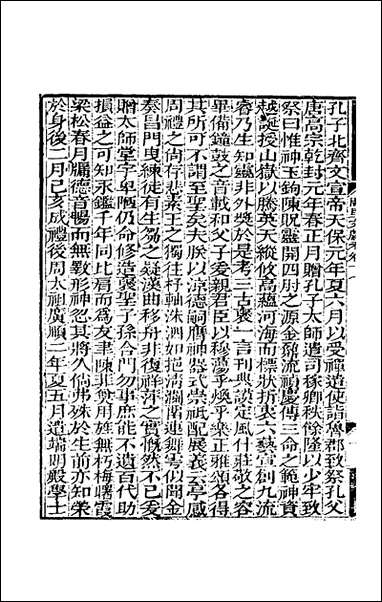 孔子北齊文宣帝天保元年夏六月以受禪遣使詣魯郡致祭孔父
唐高宗乾封元年春正月贈孔子太師遣司稼卿扶餘隆以少牢致
祭曰惟神玉鉤陳貺靈開四肘之源金鏤流禎慶傳三命之範神資
越誕授山嶽以騰英天縱攸高蘊河海而標狀折衷六藝宣創九流
睿乃生知靈非外奬於是考三古褒一言刊典謨定風什莊敬之容
畢備鐘鼓之音載和父子愛親君臣以穆蕩乎煥乎樂正雅頌各得
其所可不謂至聖矣夫朕以涼德嗣膺神器式崇祇配展義云亭感
周禮之尚存悲素王之獨往杼軸洙泗如挹清瀾留連舞雩似聞金
奏昌門曳練徒有生芻之疑漢曲移舟非復祥萍之實慨然不已爰
贈太師堂宇卑陋仍命修造褒聖子孫合門勿事庶能不遺百代助
損益之可知永鑑千年同比肩而為友聿陳菲奠用旌無朽梅曙霞
梁松春月牖德音暢而無斁形神忽其將久倘弗殊於生前亦知榮
於身後二月己亥成禮後周太祖廣順二年夏五月遣端明殿學士